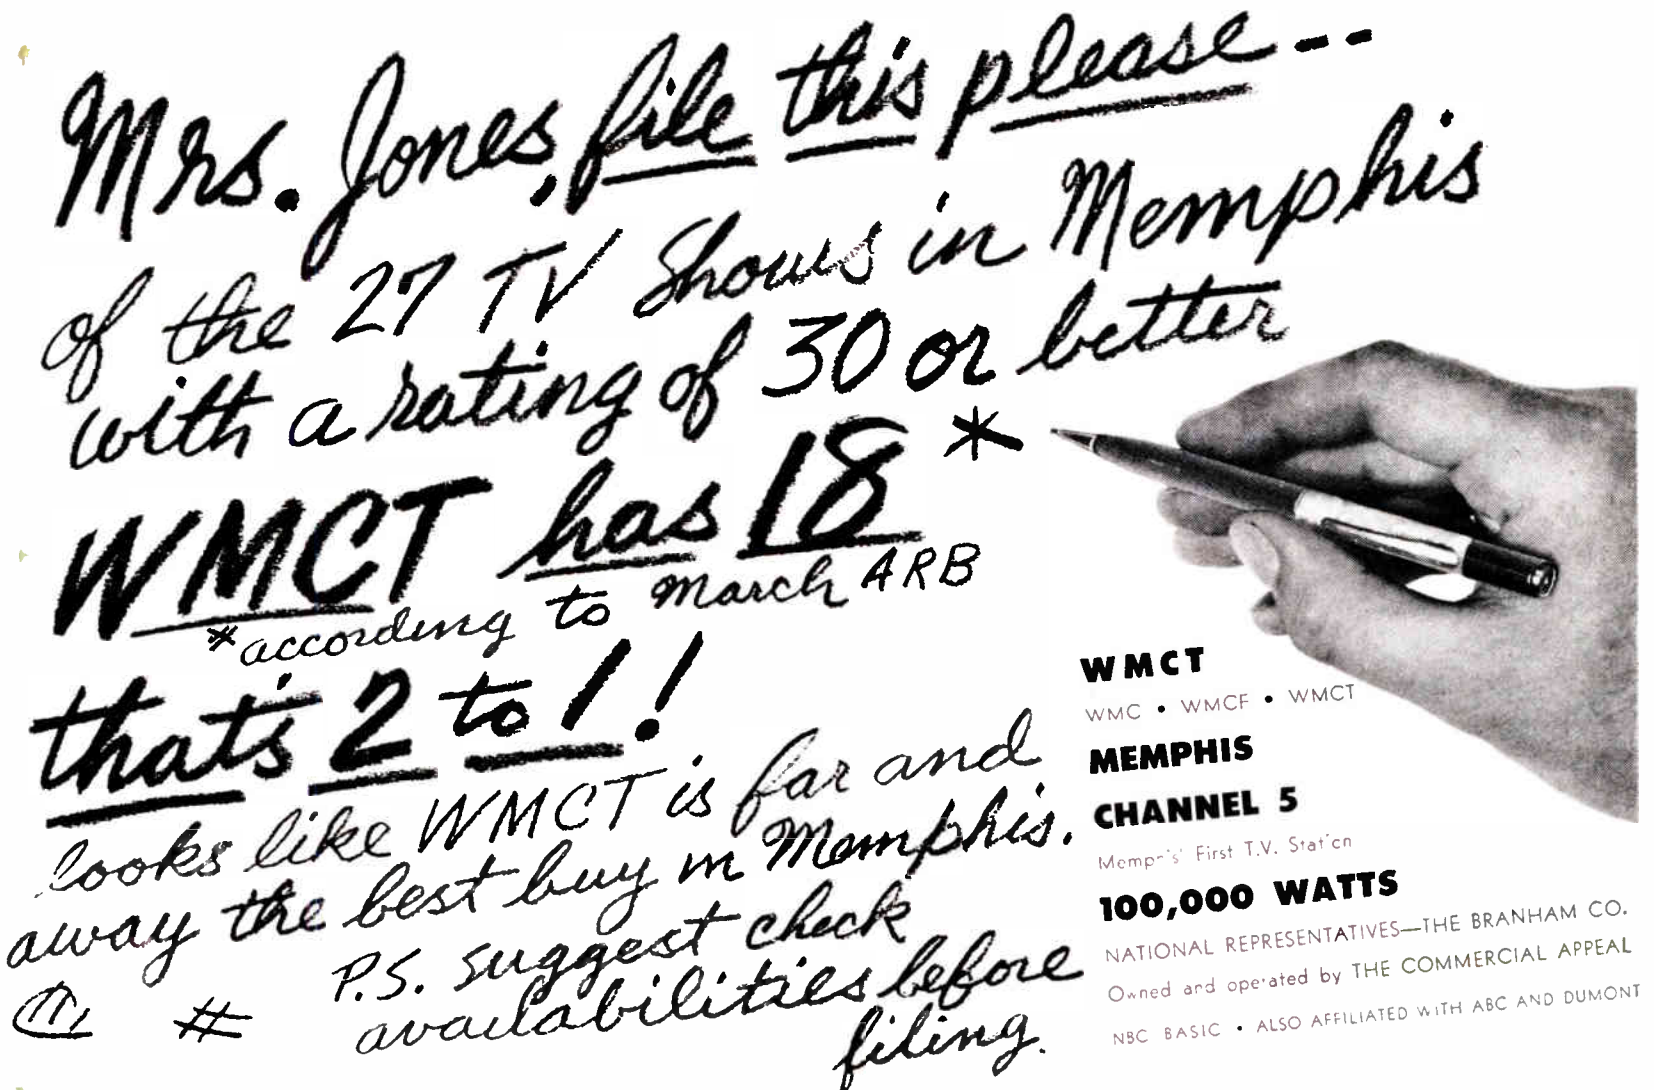 Mrs. Jones, file this please--
of the 27 TV Shows in Memphis
with a rating of 30 or better
WMCT has 18 *
*according to March ARB
that's 2 to 1!
looks like WMCT is far and
away the best buy in Memphis.
P.S. suggest check
availabilities before
filing.
#
WMCT
WMC • WMCF • WMCT
MEMPHIS
CHANNEL 5
Memphis' First T.V. Station
100,000 WATTS
NATIONAL REPRESENTATIVES—THE BRANHAM CO.
Owned and operated by THE COMMERCIAL APPEAL
NBC BASIC • ALSO AFFILIATED WITH ABC AND DUMONT